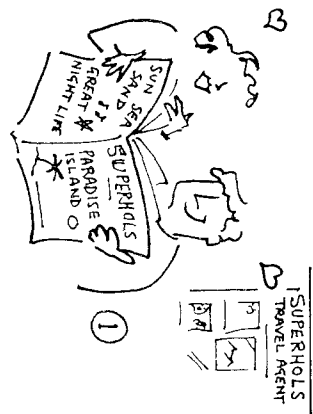 SUPERHOLS
TRAVEL AGENT
SUN SEA
SAND
GREAT
NIGHT LIFE
SUPERHOLS
PARADISE
ISLAND
1